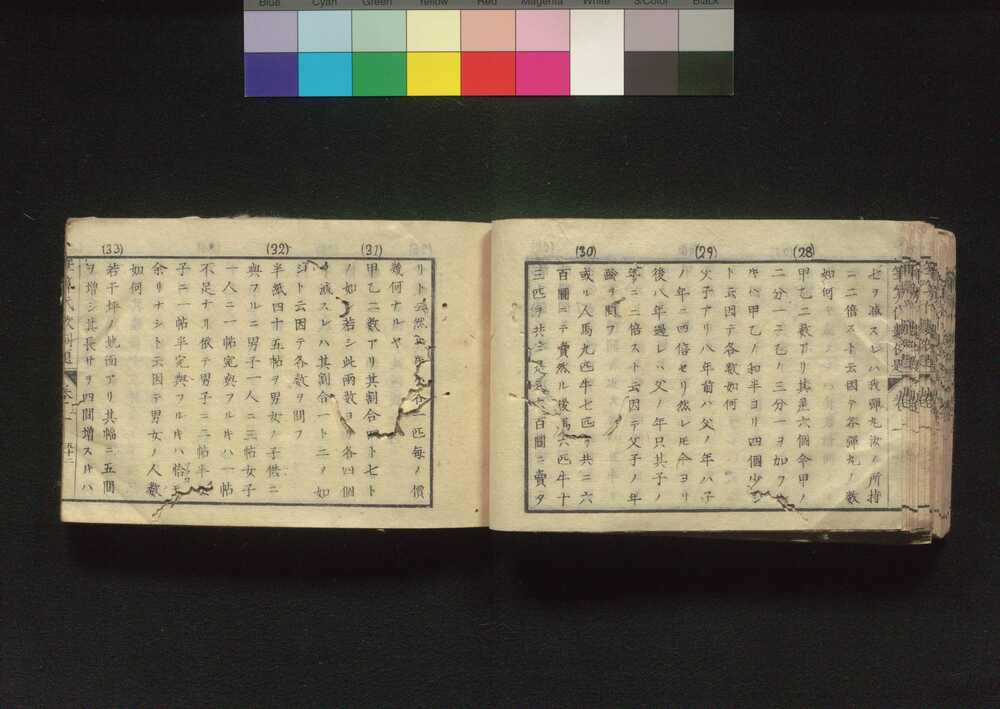 Blue Cyan Green Yellow Red Magenta White 3/Color Black
(28)
(29)
(30)
七ヲ減スレハ我彈丸汝ノ所持
ニ二倍スト云因テ各彈丸ノ数
如何
甲乙二数アリ其差六個今甲ノ
二分一ニ乙ノ三分一ヲ加フ
甲乙ノ和半ヨリ四個少
ト云因テ各数如何
父子アリ八年前ハ父ノ年ハ子
ノ年ニ四倍セリ然レ𪜈今ヨリ
後八年過レハ父ノ年只其子ノ
年ニ二倍スト云因テ父子ノ年
齢ヲ問フ
或ル人馬九匹牛七匹共ニ六
百圓ニテ賣然ル後馬六匹牛十
三匹共ニ百圓ニ賣タ
(31)
(32)
(33)
リト云然一匹每ノ價
幾何ナルヤ
甲乙二数アリ其割合四ト七ト
ノ如シ若シ此兩数ヨリ各四個
ヲ減スレハ其割合一ト二ノ如
シト云因テ各数ヲ問フ
半紙四十五帖ヲ男女ノ子供ニ
與フルニ男子一人ニ三帖女子
一人ニ一帖宛與フルキハ一帖
不足ナリ依テ男子ニ二帖半女
子ニ一帖半宛與フルキハ恰モ
余リナシト云因テ男女ノ人数
如何
若干坪ノ地面アリ其幅ニ五間
ヲ増シ其長サヲ四間増スルハ